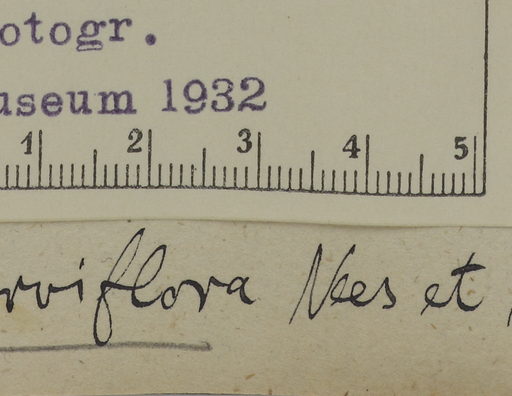 otogr.
useum 1932
1 2 3 4 5
rviflora Nees et